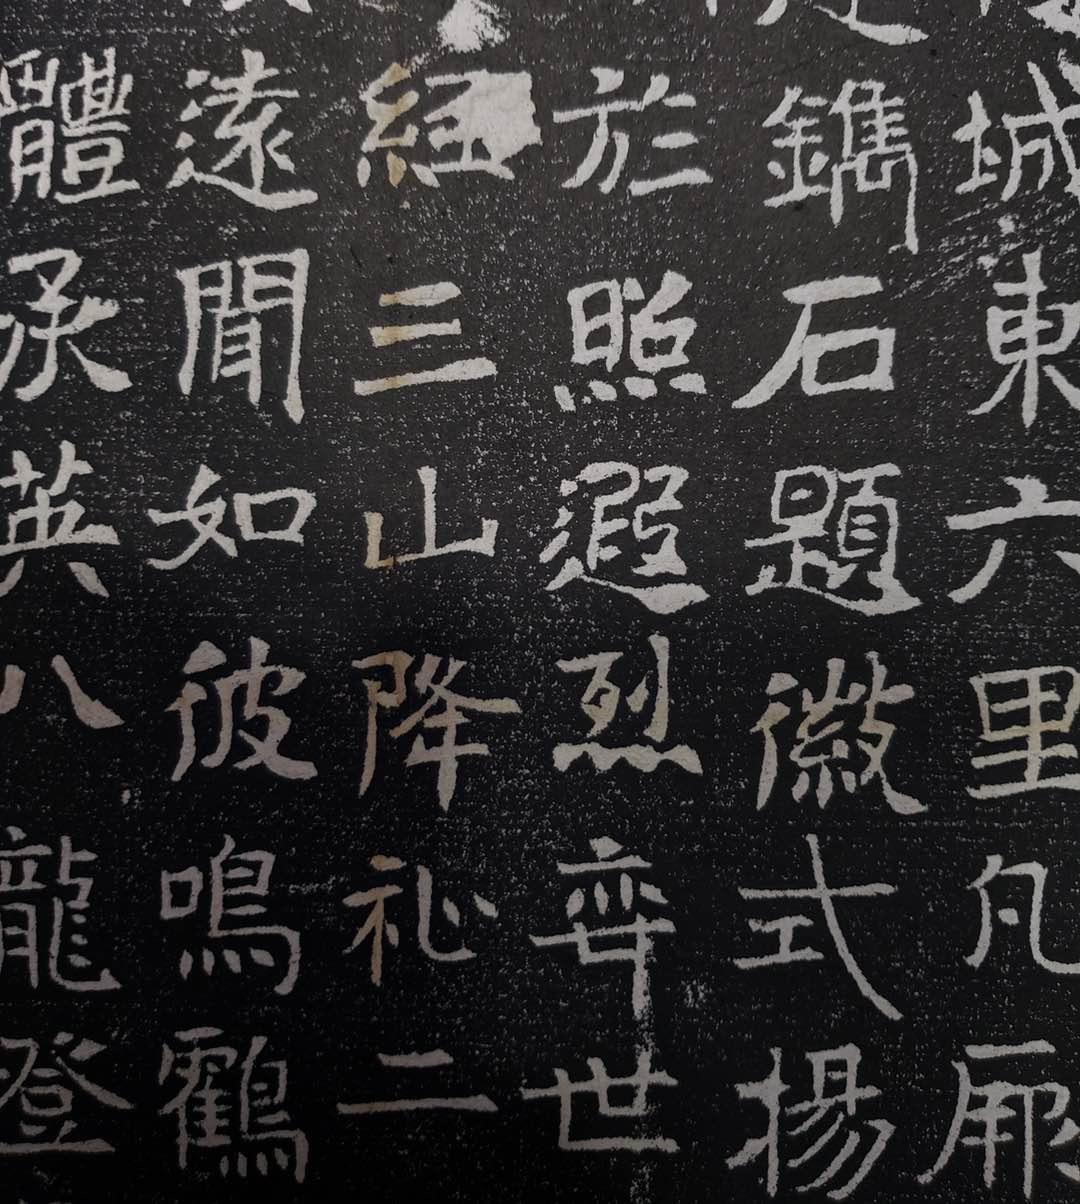 城東六里凡厥
鐫石題徽式揚
於照遐烈弈世
經三山降二
遠聞如彼鳴鶴
體承英八龍登